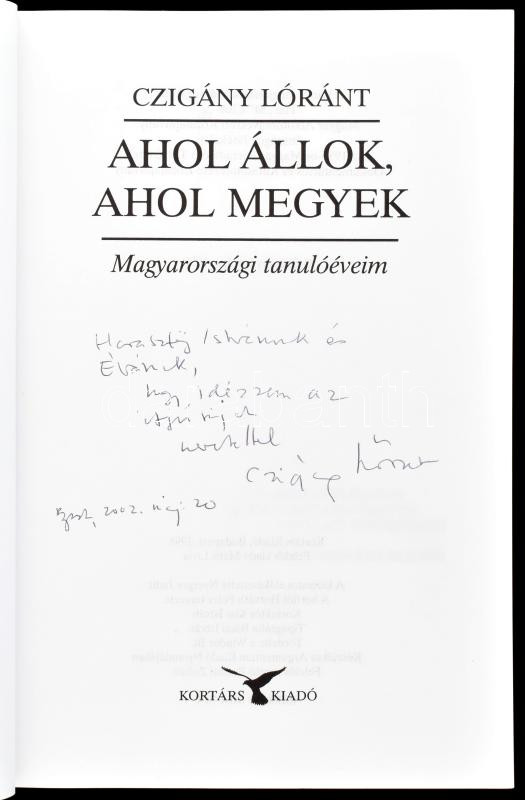 CZIGÁNY LÓRÁNT
AHOL ÁLLOK,
AHOL MEGYEK
Magyarországi tanulóéveim
Haraszty Istvánnak és
Évának,
hogy idézzem az
szeretettel
Czigány Lóránt
Bpest, 2002. máj. 20
KORTÁRS KIADÓ